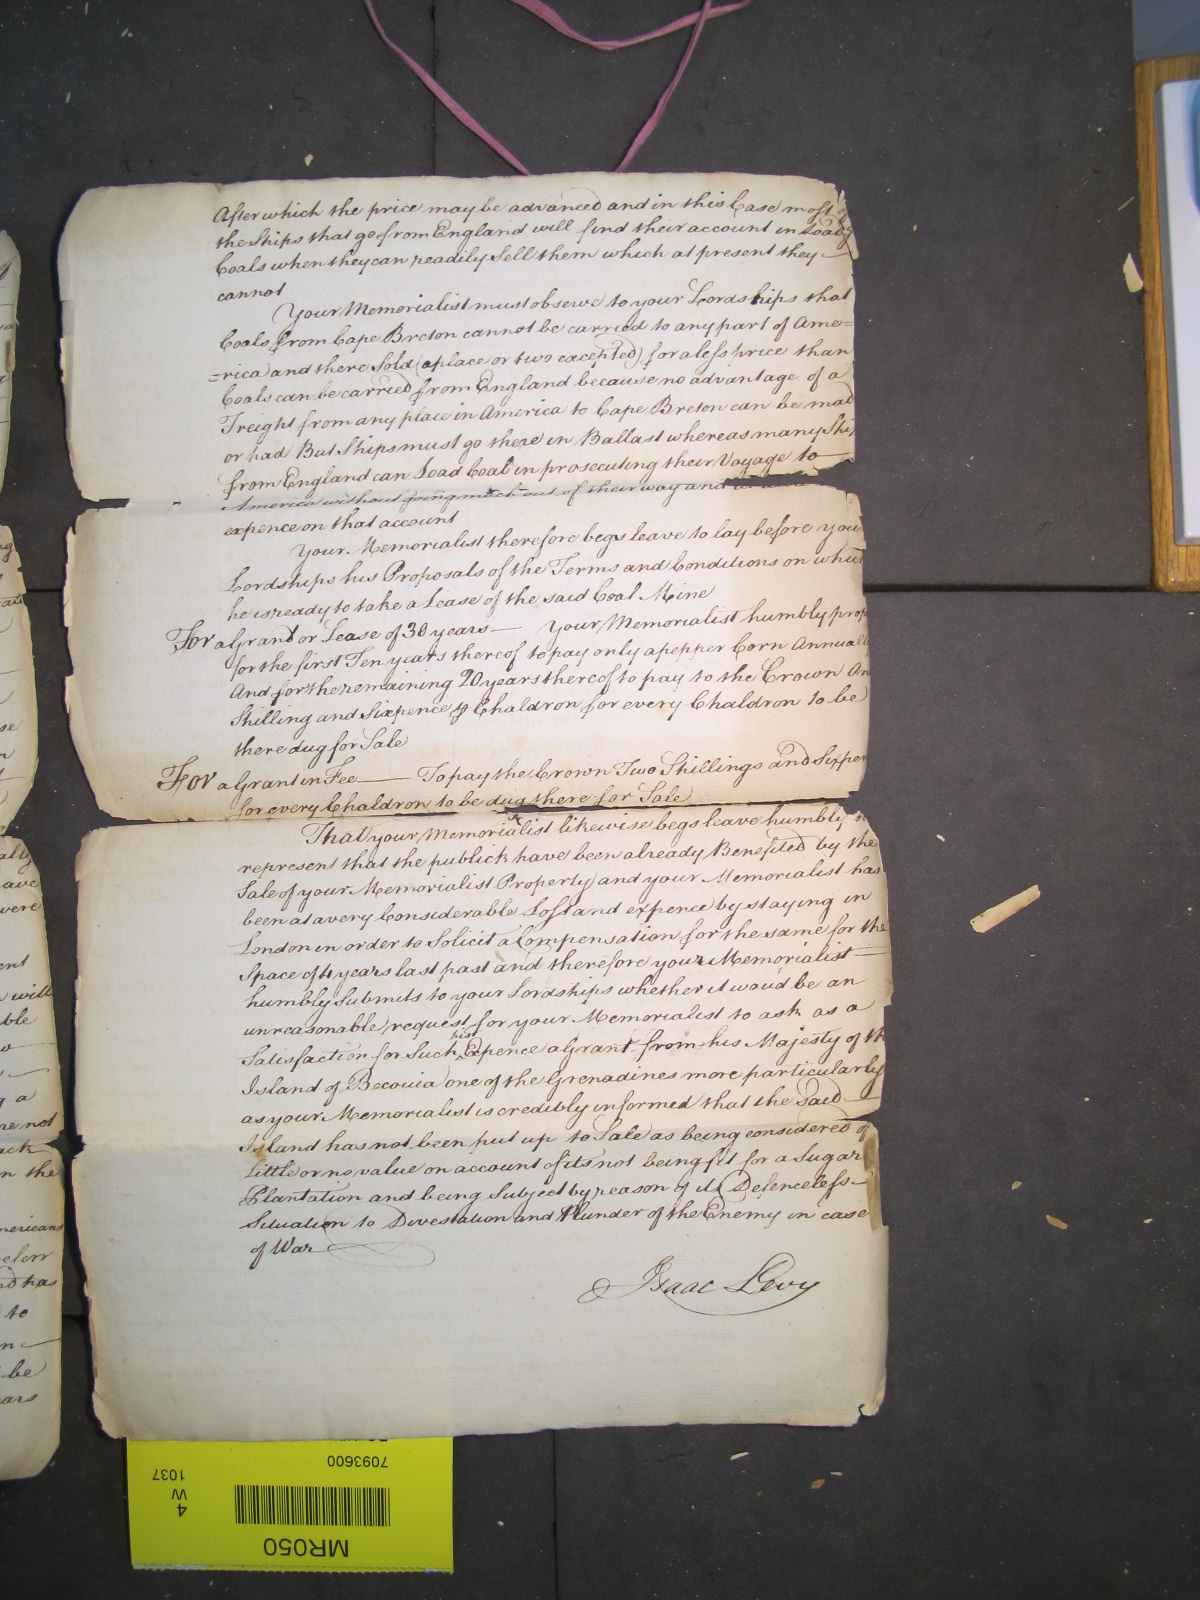 After which the price may be advanced and in this Case most of
the Ships that go from England will find their account in Loadg
Coals when they can readily Sell them which at present they
cannot
Your Memorialist must observe to your Lordships that
Coals from Cape Breton cannot be carried to any part of Ame=
=rica and there Sold (a place or two excepted) for a less price than
Coals can be carried from England because no advantage of a
Freight from any place in America to Cape Breton can be mad
or had But Ships must go there in Ballast whereas many Shi
from England can Load Coal in prosecuting their Voyage to
America without going much out of their way and
expence on that account
Your Memorialist therefore begs leave to lay before your
Lordships his Proposals of the Terms and Conditions on which
he is ready to take a Lease of the said Coal Mine
For a Grant or Lease of 30 years — Your Memorialist humbly prop
for the first Ten years thereof to pay only a pepper Corn Annuall
And for the remaining 20 years thereof to pay to the Crown On
Shilling and Sixpence ⅌ Chaldron for every Chaldron to be
there dug for Sale
For a Grant in Fee — To pay the Crown Two Shillings and Sixpen
for every Chaldron to be dug there for Sale
That your Memorialist likewise begs leave humbly
represent that the publick have been already Benefited by the
Sale of your Memorialist Property and your Memorialist has
been at a very Considerable Loss and expence by staying in
London in order to Solicit a Compensation for the same for the
Space of 4 years last past and therefore your Memorialist
humbly Submits to your Lordships whether it wou'd be an
unreasonable request for your Memorialist to ask as a
Satisfaction for Such his Expence a Grant from his Majesty of th
Island of Becouia one of the Grenadines more particularly
as your Memorialist is credibly informed that the said
Island has not been put up to Sale as being considered of
Little or no value on account of its not being fit for a Sugar
Plantation and being Subject by reason of its Defenceless
Situation to Devestation and Plunder of the Enemy in case
of War
Isaac Levy
MR050
4
W
1037
7093600